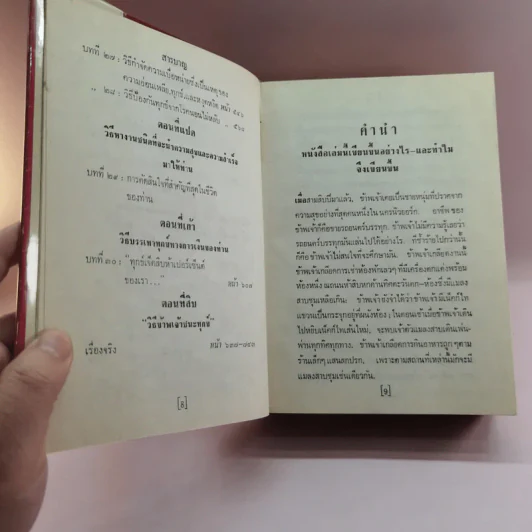 สารบาญ
บทที่ ๒๗ : วิธีกำจัดความเบื่อหน่ายซึ่งเป็นเหตุของ
ความอ่อนเพลีย, ทุกข์ และหงุดหงิด หน้า
" ๒๘ : วิธีป้องกันทุกข์จากโรคนอนไม่หลับ
ตอนที่แปด
วิธีหางานชนิดที่จะนำความสุขและความสำเร็จ
มาให้ท่าน
บทที่ ๒๙ : การตัดสินใจที่สำคัญที่สุดในชีวิต
ของท่าน
ตอนที่เก้า
วิธีบรรเทาทุกข์ทางการเงินของท่าน
บทที่ ๓๐ : "ทุกข์เจ็ดสิบห้าเปอร์เซ็นต์
ของเรา..." หน้า ๖๐๘
ตอนที่สิบ
"วิธีข้าพเจ้าชนะทุกข์"
เรื่องจริง หน้า
[๘]
คำนำ
หนังสือเล่มนี้เขียนขึ้นอย่างไร—และทำไม
จึงเขียนขึ้น
เมื่อสามสิบปีมาแล้ว, ข้าพเจ้าเคยเป็นชายหนุ่มที่ปราศจาก
ความสุขอย่างที่สุดคนหนึ่งใน นครนิวยอร์ก. อาชีพ ของ
ข้าพเจ้าก็คือขายรถยนต์บรรทุก. ข้าพเจ้าไม่มีความรู้เลยว่า
รถยนต์บรรทุกมันเล่นไปได้อย่างไร. ที่ร้ายไปกว่านั้น
ก็คือ ข้าพเจ้าไม่สนใจที่จะศึกษามัน. ข้าพเจ้าเกลียดงานนี้
ข้าพเจ้าเกลียดการเช่าห้องพักเลวๆ ที่มีเครื่องตกแต่งพร้อม
ห้องหนึ่ง ณถนนห้าสิบหกด้านทิศตะวันตก—ห้องซึ่งมีแมลง
สาบชุมเหลือเกิน. ข้าพเจ้ายังจำได้ว่า ข้าพเจ้ามีเน็คไทไห
แขวนเป็นกระจุกอยู่ที่ผนังห้อง; ในตอนเช้าเมื่อข้าพเจ้าเดิน
ไปหยิบเน็คไทเส้นใหม่, จะพบเจ้าตัวแมลงสาบเดินเพ่น-
พ่านทุกทิศทุกทาง. ข้าพเจ้าเกลียดการกินอาหารถูกๆตาม
ร้านเล็กๆ แสนสกปรก, เพราะตามสถานที่เหล่านี้มักจะมี
แมลงสาบชุมเช่นเดียวกัน.
[๑]